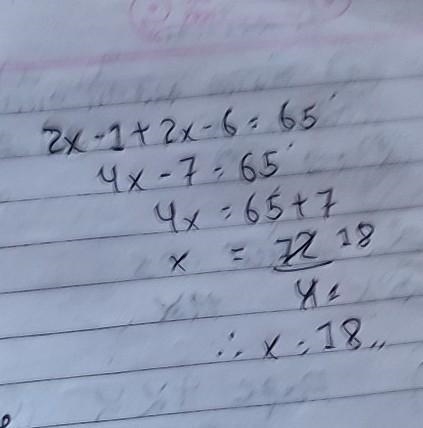 2x - 1 + 2x - 6 = 65
4x - 7 = 65
4x = 65 + 7
x = 72 18
4 1
∴ x = 18,,